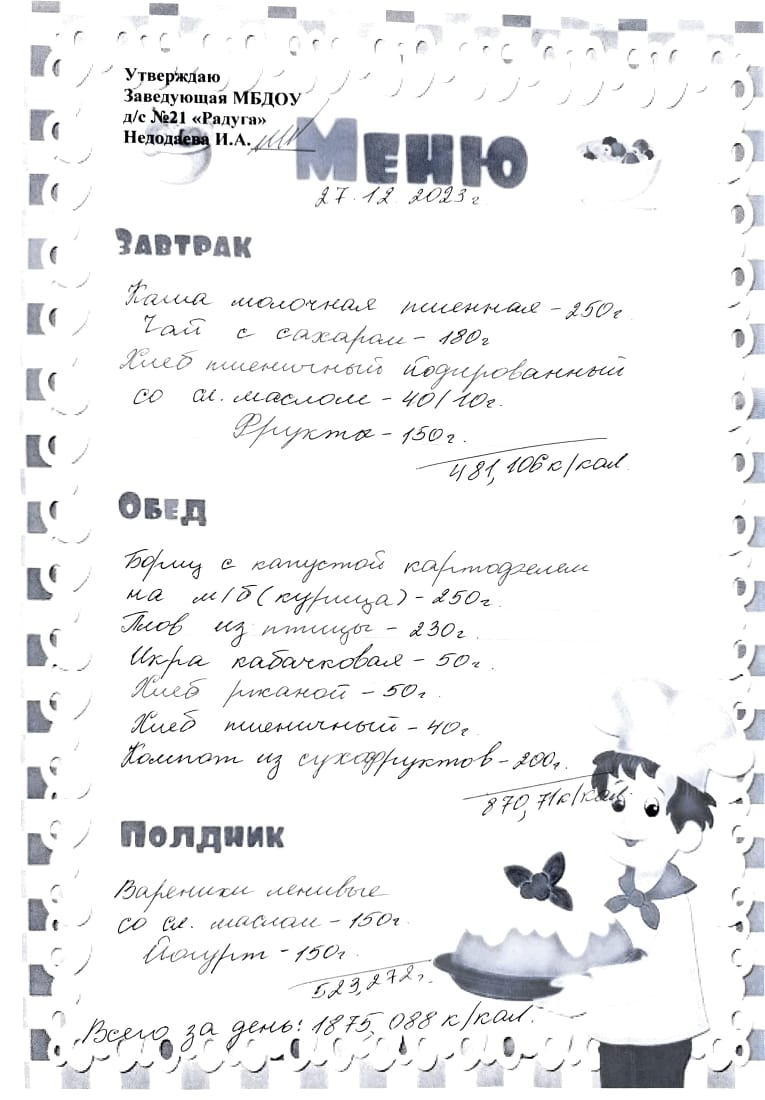 Утверждаю
Заведующая МБДОУ
д/с №21 «Радуга»
Недодаева И.А.
Меню
27.12.2023г
Завтрак
Каша молочная пшенная - 250г.
Чай с сахаром - 180г
Хлеб пшеничный йодированный
со сл. маслом - 40/10г.
Фрукты - 150г.
481,106 к/кал.
Обед
Борщ с капустой картофелем
на м/б (курица) - 250г.
Плов из птицы - 230г.
Икра кабачковая - 50г.
Хлеб ржаной - 50г.
Хлеб пшеничный - 40г.
Компот из сухофруктов - 200г.
870,71к/кал.
Полдник
Вареники ленивые
со сл. маслом - 150г.
Йогурт - 150г.
523,272г.
Всего за день: 1875,088 к/кал.